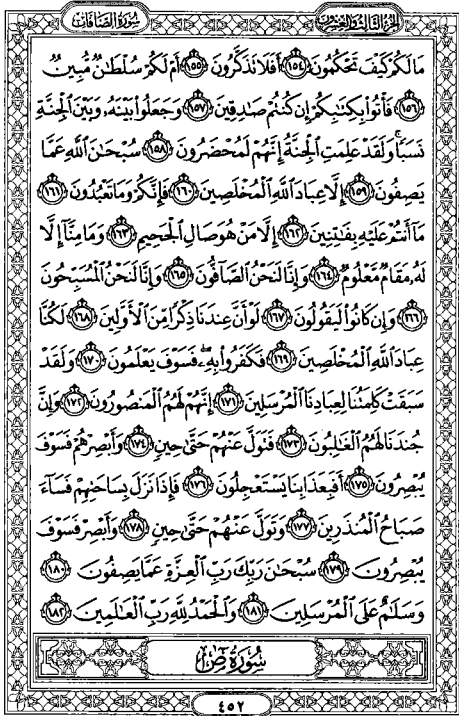 سُورَةُ الصَّافَّاتِ
الجُزْءُ الثَّالِثُ وَالعِشْرُونَ
مَا لَكُمْ كَيْفَ تَحْكُمُونَ ١٥٤ أَفَلَا تَذَكَّرُونَ ١٥٥ أَمْ لَكُمْ سُلْطَانٌ مُّبِينٌ
١٥٦ فَأْتُوا بِكِتَابِكُمْ إِن كُنتُمْ صَادِقِينَ ١٥٧ وَجَعَلُوا بَيْنَهُ وَبَيْنَ الْجِنَّةِ
نَسَبًا ۚ وَلَقَدْ عَلِمَتِ الْجِنَّةُ إِنَّهُمْ لَمُحْضَرُونَ ١٥٨ سُبْحَانَ اللَّهِ عَمَّا
يَصِفُونَ ١٥٩ إِلَّا عِبَادَ اللَّهِ الْمُخْلَصِينَ ١٦٠ فَإِنَّكُمْ وَمَا تَعْبُدُونَ ١٦١
مَا أَنتُمْ عَلَيْهِ بِفَاتِنِينَ ١٦٢ إِلَّا مَنْ هُوَ صَالِ الْجَحِيمِ ١٦٣ وَمَا مِنَّا إِلَّا
لَهُ مَقَامٌ مَّعْلُومٌ ١٦٤ وَإِنَّا لَنَحْنُ الصَّافُّونَ ١٦٥ وَإِنَّا لَنَحْنُ الْمُسَبِّحُونَ
١٦٦ وَإِن كَانُوا لَيَقُولُونَ ١٦٧ لَوْ أَنَّ عِندَنَا ذِكْرًا مِّنَ الْأَوَّلِينَ ١٦٨ لَكُنَّا
عِبَادَ اللَّهِ الْمُخْلَصِينَ ١٦٩ فَكَفَرُوا بِهِ ۖ فَسَوْفَ يَعْلَمُونَ ١٧٠ وَلَقَدْ
سَبَقَتْ كَلِمَتُنَا لِعِبَادِنَا الْمُرْسَلِينَ ١٧١ إِنَّهُمْ لَهُمُ الْمَنصُورُونَ ١٧٢ وَإِنَّ
جُندَنَا لَهُمُ الْغَالِبُونَ ١٧٣ فَتَوَلَّ عَنْهُمْ حَتَّىٰ حِينٍ ١٧٤ وَأَبْصِرْهُمْ فَسَوْفَ
يُبْصِرُونَ ١٧٥ أَفَبِعَذَابِنَا يَسْتَعْجِلُونَ ١٧٦ فَإِذَا نَزَلَ بِسَاحَتِهِمْ فَسَاءَ
صَبَاحُ الْمُنذَرِينَ ١٧٧ وَتَوَلَّ عَنْهُمْ حَتَّىٰ حِينٍ ١٧٨ وَأَبْصِرْ فَسَوْفَ
يُبْصِرُونَ ١٧٩ سُبْحَانَ رَبِّكَ رَبِّ الْعِزَّةِ عَمَّا يَصِفُونَ ١٨٠
وَسَلَامٌ عَلَى الْمُرْسَلِينَ ١٨١ وَالْحَمْدُ لِلَّهِ رَبِّ الْعَالَمِينَ ١٨٢
سُورَةُ صٓ
٤٥٢